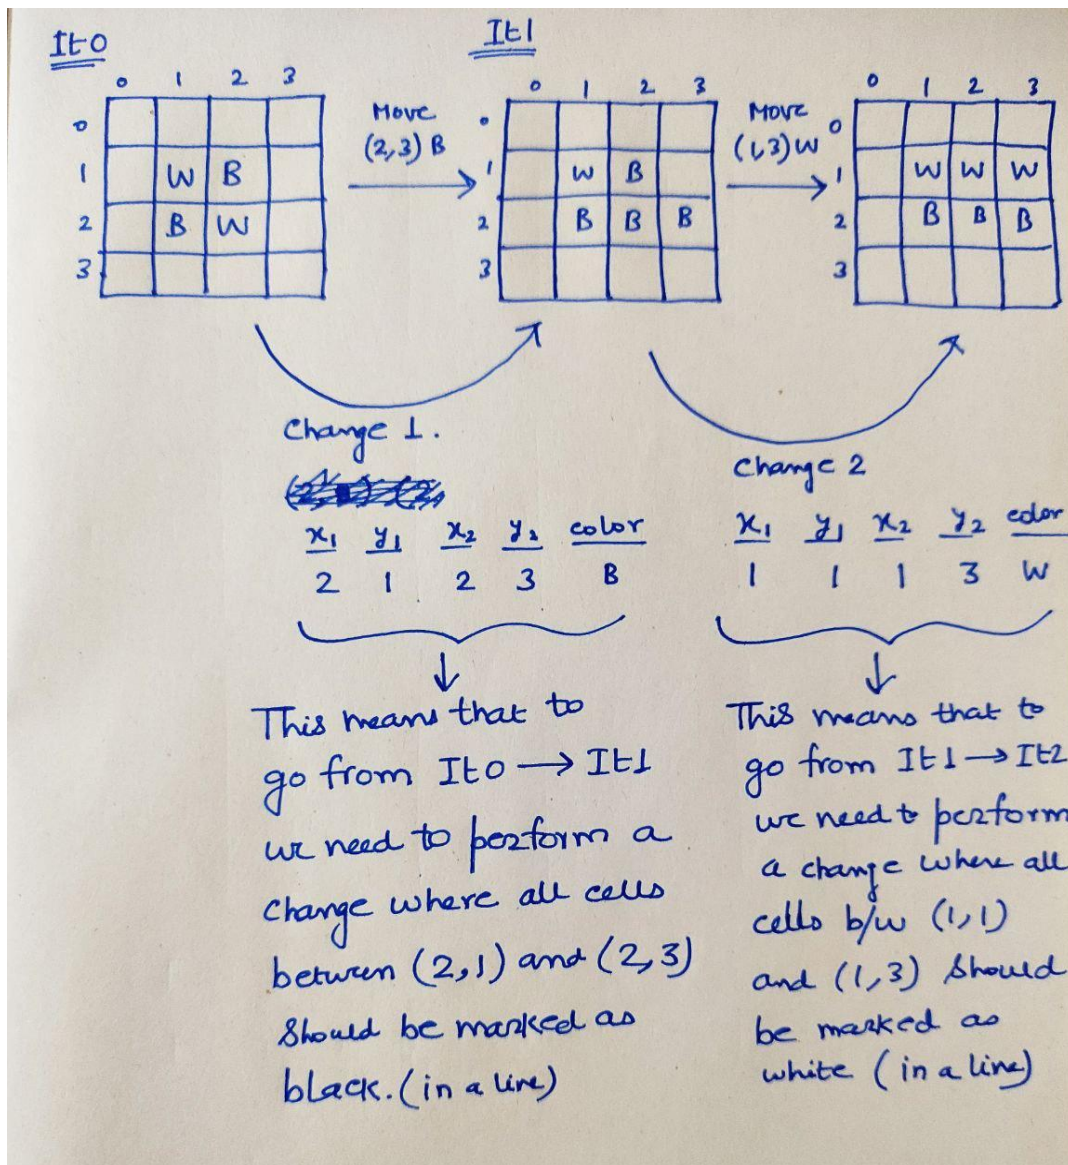 It0
It1
0 1 2 3
0
1 W B
2 B W
3
Move
(2,3) B
0 1 2 3
0
1 W B
2 B B B
3
Move
(1,3) W
0 1 2 3
0
1 W W W
2 B B B
3
Change 1.
x1 y1 x2 y2 color
2 1 2 3 B
This means that to
go from It0 → It1
we need to perform a
change where all cells
between (2,1) and (2,3)
should be marked as
black. (in a line)
Change 2
x1 y1 x2 y2 color
1 1 1 3 W
This means that to
go from It1 → It2
we need to perform
a change where all
cells b/w (1,1)
and (1,3) should
be marked as
white (in a line)